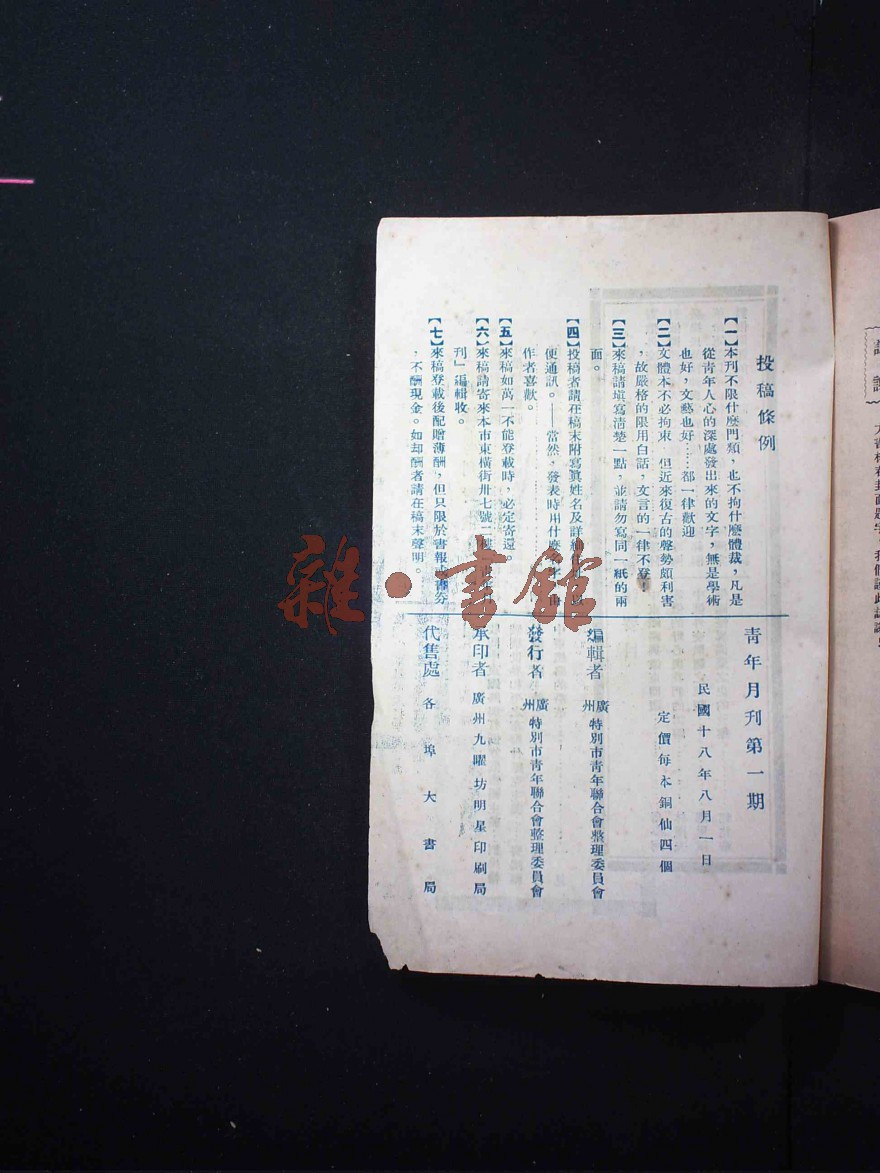 投稿條例
【一】本刊不限什麽門類，也不拘什麽體裁，凡是
從青年人心的深處發出來的文字，無是學術
也好，文藝也好……都一律歡迎
【二】文體本不必拘束，但近來復古的聲勢頗利害
，故嚴格的限用白話，文言的一律不登！
【三】來稿請塡寫清楚一點，並請勿寫同一紙的兩
面。
【四】投稿者請在稿末附寫眞姓名及詳
便通訊。——當然，發表時用什麽
作者喜歡。
【五】來稿如萬一不能登載時，必定寄還。
【六】來稿請寄來本市東橫街卅七號二樓
刊」編輯收。
【七】來稿登載後配贈薄酬，但只限於書報或書券
，不酬現金。如却酬者請在稿末聲明。
青年月刊第一期
民國十八年八月一日
定價每本銅仙四個
編輯者 廣州特別市青年聯合會整理委員會
發行者 廣州特別市青年聯合會整理委員會
承印者 廣州九曜坊明星印刷局
代售處 各埠大書局
雜·書館